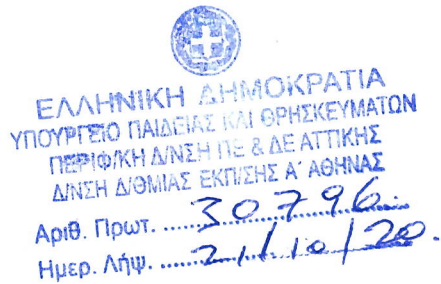 ΕΛΛΗΝΙΚΗ ΔΗΜΟΚΡΑΤΙΑ
ΥΠΟΥΡΓΕΙΟ ΠΑΙΔΕΙΑΣ ΚΑΙ ΘΡΗΣΚΕΥΜΑΤΩΝ
ΠΕΡΙΦ/ΚΗ Δ/ΝΣΗ ΠΕ & ΔΕ ΑΤΤΙΚΗΣ
Δ/ΝΣΗ Δ/ΘΜΙΑΣ ΕΚΠ/ΣΗΣ Α΄ ΑΘΗΝΑΣ
Αριθ. Πρωτ. ...30796...
Ημερ. Λήψ. ...21/10/20.